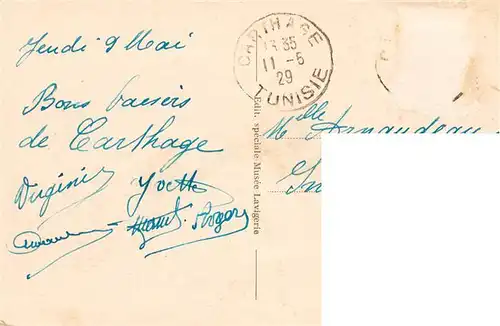 Jeudi 9 Mai
Bons baisers
de Carthage
Virginie Yvette
Roger
CARTHAGE
13 35
11 - 5
29
TUNISIE
Edit. spéciale Musée Lavigerie
Melle